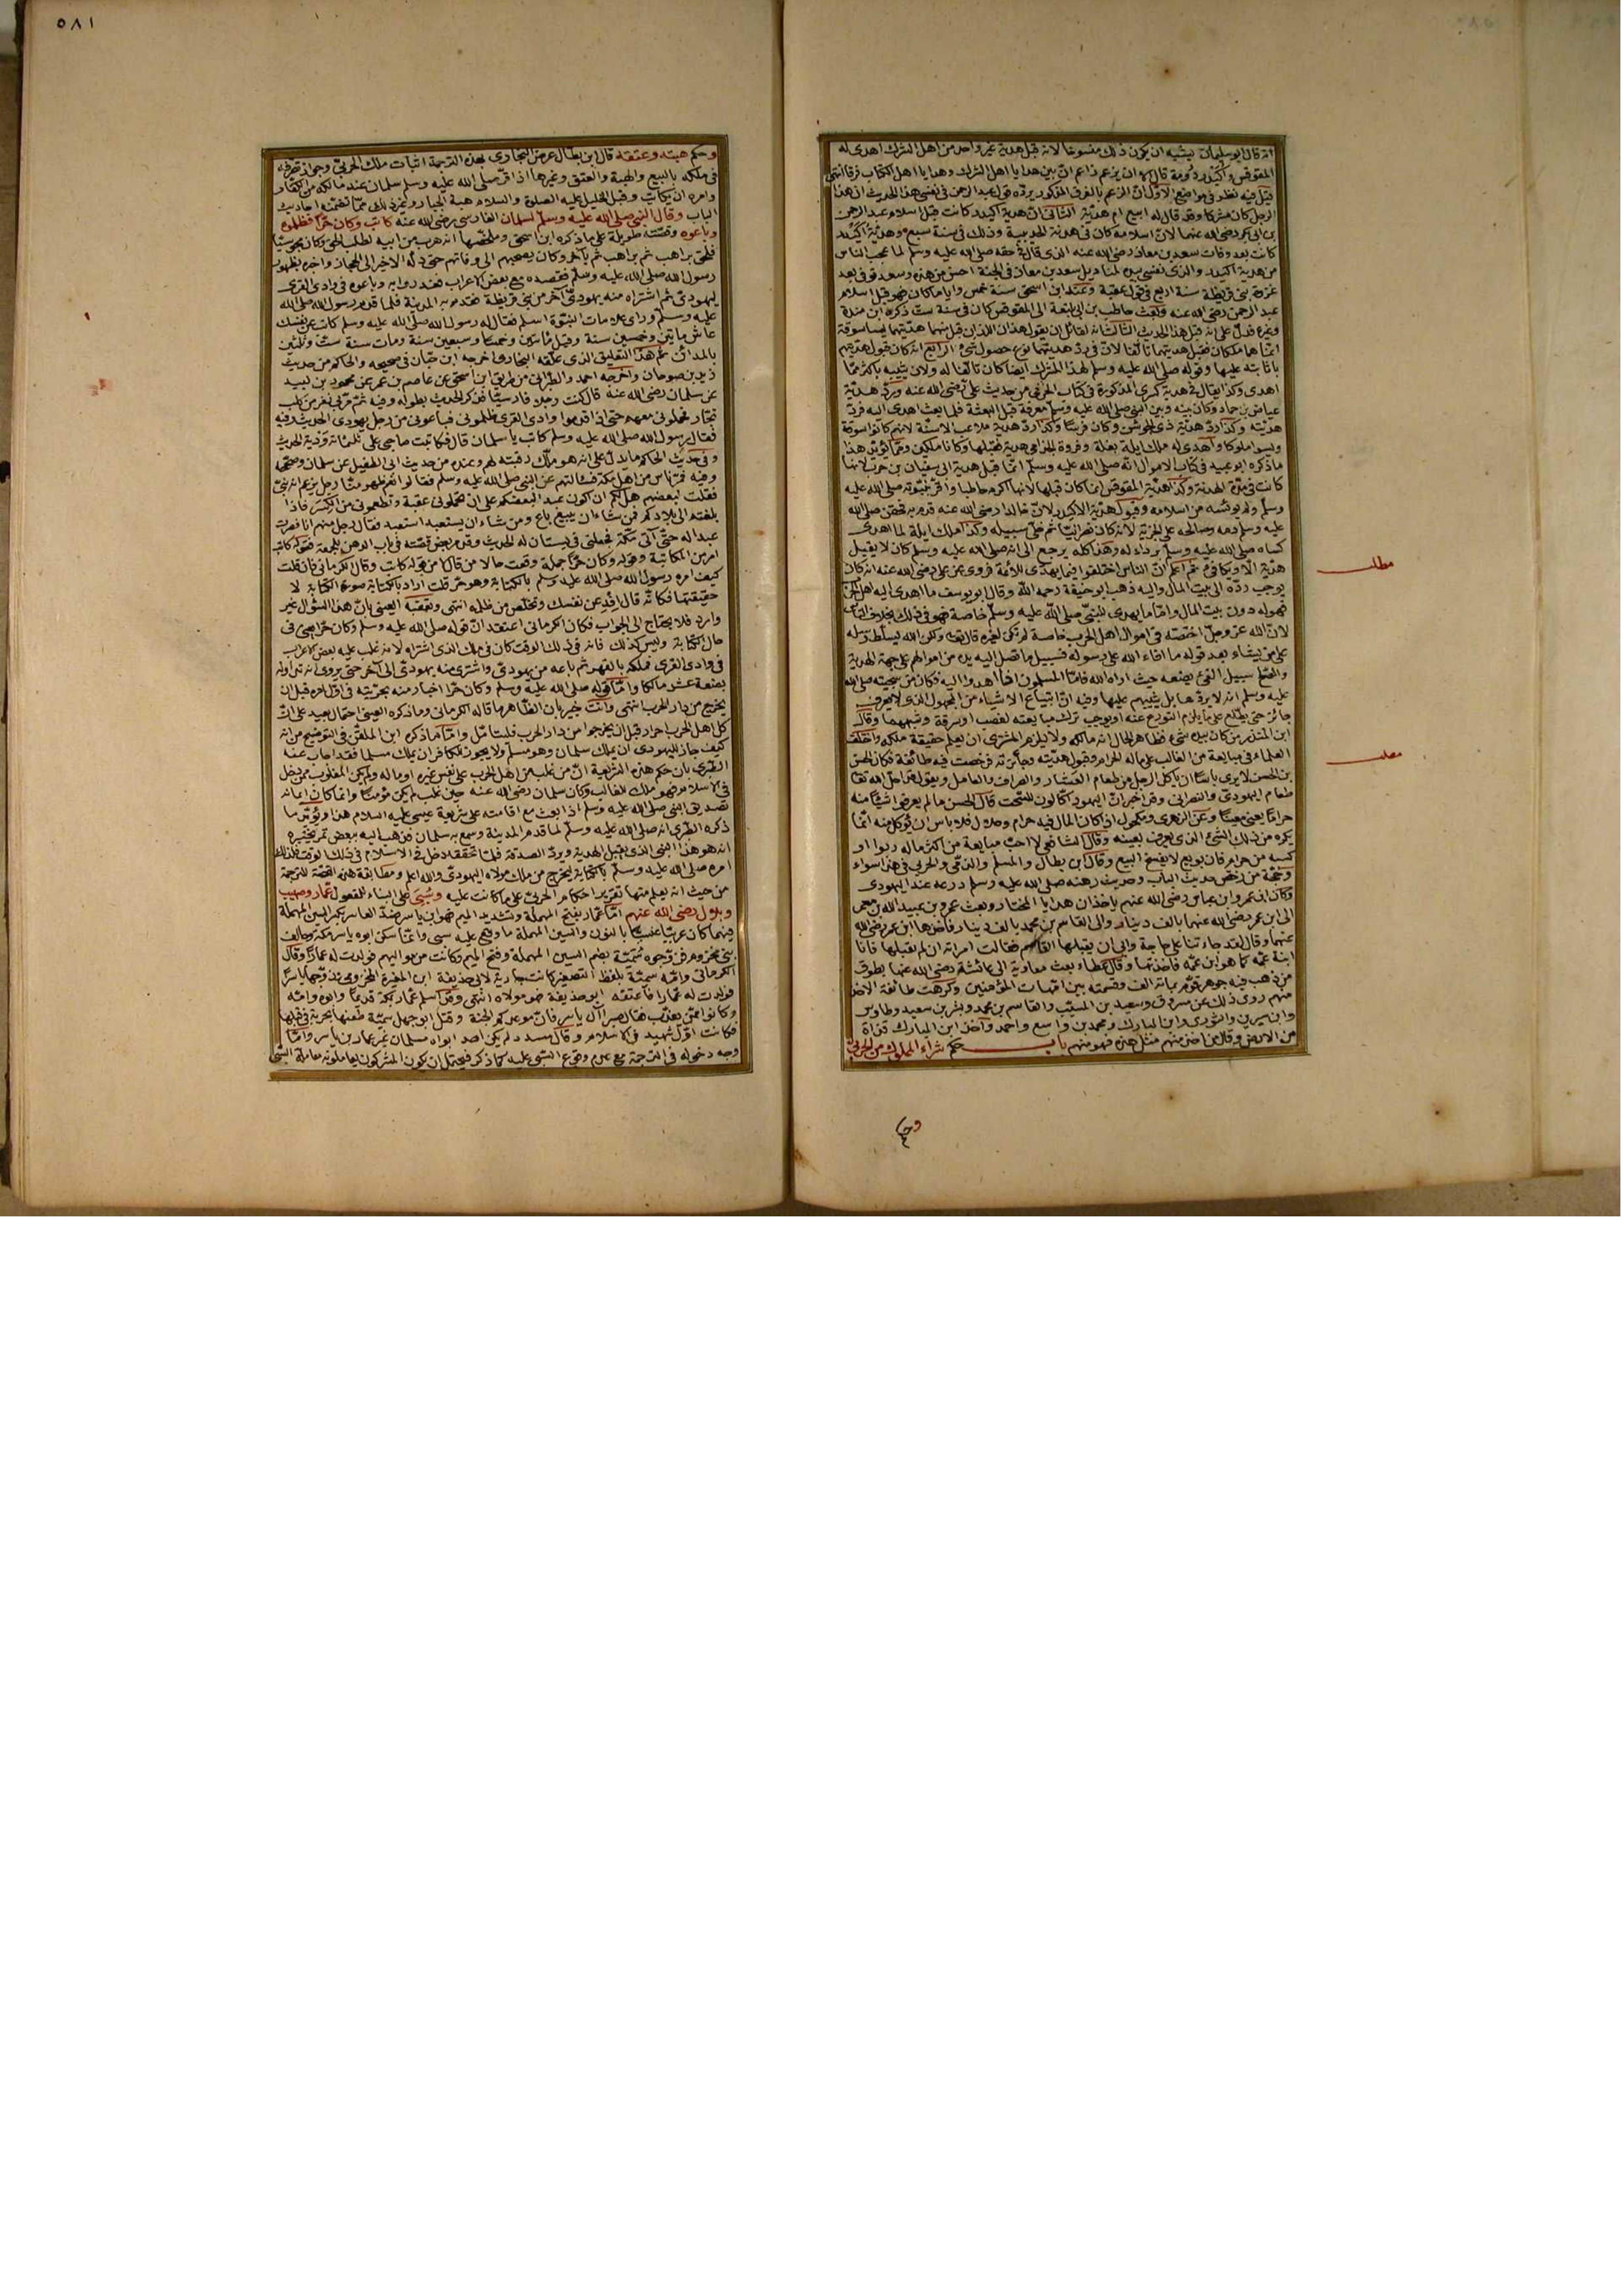 انه قال ابو سليمان يشبه ان يكون ذلك منسوخا لانه قبل هدية غير واحد من اهل الشرك اهدى له
المقوقس واكيدر دومة قال الا ان يزعم زاعم ان بين هدايا اهل الشرك وهدايا اهل الكتاب فرقا انتهى
قيل فيه نظر في مواضع الاول ان الزعم بالفرق المذكور يرده قول عبد الرحمن في نفس هذا الحديث ان هذا
الرجل كان مشركا وقد قال له ابيع ام هدية الثاني ان هدية اكيدر كانت قبل اسلام عبد الرحمن
بن ابي بكر رضي الله عنهما لان اسلامه كان في هدنة الحديبية وذلك في سنة سبع وهدية اكيدر
كانت بعد وفات سعد بن معاذ رضي الله عنه الذي قال في حقه صلى الله عليه وسلم لما عجب الناس
من هدية اكيدر والذي نفسي بيده لمناديل سعد بن معاذ في الجنة احسن من هذه وسعد توفي بعد
غزوة بني قريظة سنة اربع في قول عقبة وعند ابن اسحق سنة خمس وايا ما كان فهو قبل اسلام
عبد الرحمن رضي الله عنه وبعث حاطب بن ابي بلتعة الى المقوقس كان في سنة ست ذكره ابن مندة
وغيره فدل على انه قبل هذا الحديث الثالث انه لقائل ان يقول هذان اللذان قبل منهما هديتهما ليسا سوقة
انما هما ملكان فقبل هديتهما تألفا لان في رد هديتهما نوع حصول شيء الرابع انه كان قبول هديتهم
باثابته عليها وقوله صلى الله عليه وسلم لهذا المشرك ايضا كان تألفا له ولان يثيبه باكثر مما
اهدى وكذا يقال في هدية كسرى المذكورة في كتاب الحربي من حديث علي رضي الله عنه ورد هدية
عياض بن حماد وكان بينه وبين النبي صلى الله عليه وسلم معرفة قبل البعثة فلما بعث اهدى اليه فرد
هديته وكذا رد هدية ذي الجوشن وكان فرسا وكذا رد هدية ملاعب الاسنة لانهم كانوا سوقة
وليسوا ملوكا واهدى له ملك ايلة بغلة وفروة الجذامي هدية فقبلها وكانا ملكين ومما يؤيد هذا
ما ذكره ابو عبيد في كتاب الاموال انه صلى الله عليه وسلم انما قبل هدية ابي سفيان بن حرب لانها
كانت في مدة الهدنة وكذا هدية المقوقس انما كان قبلها لانها اكرم حاطبا واقر بنبوته صلى الله عليه
وسلم ولم يويسه من اسلامه وقبول هدية الاكيدر لان خالدا رضي الله عنه قدم به فحقن صلى الله
عليه وسلم دمه وصالحه على الجزية لانه كان نصرانيا ثم خلى سبيله وكذا ملك ايلة لما اهدى
كساه صلى الله عليه وسلم برداء له وهذا كله يرجع الى انه صلى الله عليه وسلم كان لا يقبل
هدية الا ويكافئ ثم اعلم ان الناس اختلفوا فيما يهدى للائمة فروي عن علي رضي الله عنه انه كان
يوجب رده الى بيت المال واليه ذهب ابو حنيفة رحمه الله وقال ابو يوسف ما اهدى اليه اهل الحرب
فهو له دون بيت المال واما ما يهدى للنبي صلى الله عليه وسلم خاصة فهو في ذلك بخلاف الناس
لان الله عز وجل اختصه في اموال اهل الحرب خاصة لم تكن لغيره قال تعالى ولكن الله يسلط رسله
على من يشاء بعد قوله ما افاء الله على رسوله فسبيل ما تصل اليه يده من اموالهم على جهة الهدية
والصلح سبيل الفيء يصنعه حيث اراه الله فاما المسلمون اذا اهدوا اليه فكان من سجيته صلى الله
عليه وسلم انه لا يردها بل يثيبهم عليها وفيه ان ابتياع الاشياء من المجهول الذي لا يعرف
جائز حتى يطلع على ما يلزم التورع عنه او يوجب ترك مبايعته لغصب او سرقة وشبههما وقال
ابن المنذر من كان بيده شيء فظاهر الحال انه مالكه ولا يلزم المشتري ان يعلم حقيقة ملكه واختلف
العلماء في مبايعة من الغالب على ماله الحرام وقبول هديته وجائزته فرخصت فيه طائفة فكان الحسن
بن الحسن لا يرى باسا ان ياكل الرجل من طعام العشار والصراف والعامل ويقول قد احل الله تعالى
طعام اليهودي والنصراني وقد اخبر ان اليهود اكالون للسحت قال الحسن ما لم يعرفوا شيئا منه
حراما يعني معينا وعن الزهري ومكحول اذا كان المال فيه حرام وحلال فلا باس ان يؤكل منه انما
يكره من ذلك الشيء الذي يعرف بعينه وقال الشافعي لا احب مبايعة من اكثر ماله ربوا او
كسبه من حرام فان بويع لا يفسخ البيع وقال ابن بطال والمسلم والذمي والحربي في هذا سواء
وحجة من رخص حديث الباب وحديث رهنه صلى الله عليه وسلم درعه عند اليهودي
وكان ابن عمر وابن عباس رضي الله عنهم ياخذان هدايا المختار وبعث عمرو بن عبيد الله بن معمر
الى ابن عمر رضي الله عنهما بالف دينار والى القاسم بن محمد بالف دينار فاخذها ابن عمر رضي الله
عنهما وقال لقد جاءتنا على حاجة وابى ان يقبلها القاسم فقالت امراته ان لم يقبلها فانا
ابنة عمه كما هو ابن عمه فاخذتها وقال عطاء بعث معاوية الى عائشة رضي الله عنها بطوق
من ذهب فيه جوهر قوم بمائة الف وقسمته بين امهات المؤمنين وكرهت طائفة الاخذ
منهم روى ذلك عن مسروق وسعيد بن المسيب والقاسم بن محمد وبشر بن سعيد وطاوس
وابن سيرين والثوري وابن المبارك ومحمد بن واسع واحمد واخذ ابن المبارك قذاة
من الارض وقال من اخذ منهم مثل هذه فهو منهم باب حكم شراء المملوك من الحربي
مطلب
مطلب
وحكم
٥٨١
وحكم هبته وعتقه قال ابن بطال غرض البخاري بهذه الترجمة اثبات ملك الحربي وجواز تصرفه
في ملكه بالبيع والهبة والعتق وغيرها اذ اقر صلى الله عليه وسلم سلمان عند مالكه من الكفار
وامره ان يكاتب وقبل الخليل عليه الصلوة والسلام هبة الجبار وغير ذلك مما تضمنه احاديث
الباب وقال النبي صلى الله عليه وسلم لسلمان الفارسي رضي الله عنه كاتب وكان حرا فظلموه
وباعوه وقصته طويلة على ما ذكره ابن اسحق وملخصها انه هرب من ابيه لطلب الحق وكان مجوسيا
فلحق براهب ثم براهب ثم بآخر وكان يصحبهم الى وفاتهم حتى دله الاخير الى الحجاز واخبره بظهور
رسول الله صلى الله عليه وسلم فقصده مع بعض الاعراب فغدروا به وباعوه في وادي القرى
ليهودي ثم اشتراه منه يهودي آخر من بني قريظة فقدم به المدينة فلما قدم رسول الله صلى الله
عليه وسلم وراى علامات النبوة اسلم فقال له رسول الله صلى الله عليه وسلم كاتب عن نفسك
عاش مائتين وخمسين سنة وقيل مائتين وخمسا وسبعين سنة ومات سنة ست وثلثين
بالمدائن ثم هذا التعليق الذي علقه البخاري اخرجه ابن حبان في صحيحه والحاكم من حديث
زيد بن صوحان واخرجه احمد والطبراني من طريق ابن اسحق عن عاصم بن عمر عن محمود بن لبيد
عن سلمان رضي الله عنه قال كنت رجلا فارسيا فذكر الحديث بطوله وفيه ثم مر بي نفر من كلب
تجار فحملوني معهم حتى اذا قدموا وادي القرى ظلموني فباعوني من رجل يهودي الحديث وفيه
فقال رسول الله صلى الله عليه وسلم كاتب يا سلمان قال فكاتبت صاحبي على ثلثمائة ودية الحديث
وفي حديث الحاكم ما يدل على انه هو ملك رقبته لهم وعنده من حديث ابي الطفيل عن سلمان وصححه
وفيه فمر ناس من اهل مكة فسألتهم عن النبي صلى الله عليه وسلم فقالوا نعم ظهر منا رجل يزعم انه نبي
فقلت لبعضهم هل لكم ان اكون عبدا لبعضكم على ان تحملوني عقبة وتطعموني من الكسر فاذا
بلغتم الى بلادكم فمن شاء ان يبيع باع ومن شاء ان يستعبد استعبد فقال رجل منهم انا فصرت
عبدا له حتى اتى مكة فجعلني في بستان له الحديث وقد مر بعض قصته في باب الدهن للجمعة فقوله كاتب
امر من المكاتبة وقوله وكان حرا جملة وقعت حالا من قال لا من قوله كاتب وقال الكرماني فان قلت
كيف امره رسول الله صلى الله عليه وسلم بالكتابة وهو حر قلت اراد بالكتابة صورة الكتابة لا
حقيقتها فكانه قال افد عن نفسك وتخلص من ظلمه انتهى وتعقبه العيني بان هذا السؤال غير
وارد فلا يحتاج الى الجواب فكان الكرماني اعتقد ان قوله صلى الله عليه وسلم وكان حرا يعني في
حال الكتابة وليس كذلك فانه في ذلك الوقت كان في ملك الذي اشتراه لانه غلب عليه بعض الاعراب
في وادي القرى فملكه بالقهر ثم باعه من يهودي واشترى منه يهودي الى آخر حتى يروى انه تداوله
بضعة عشر مالكا واما قوله صلى الله عليه وسلم وكان حرا اخبار منه بحريته في اول امره قبل ان
يخرج من دار الحرب انتهى وانت خبير بان الظاهر ما قاله الكرماني وما ذكره العيني احتمال بعيد على ان
كل اهل الحرب احرار قبل ان يخرجوا من دار الحرب فليتأمل واما ما ذكره ابن الملقن في التوضيح من انه
كيف جاز لليهودي ان يملك سلمان وهو مسلم ولا يجوز للكافر ان يملك مسلما فقد اجاب عنه
الطبري بان حكم هذه الشريعة ان من غلب من اهل الحرب على نفس غيره او ماله ولم يكن المغلوب ممن دخل
في الاسلام فهو ملك للغالب وكان سلمان رضي الله عنه حين غلب لم يكن مؤمنا وانما كان ايمانه
تصديق النبي صلى الله عليه وسلم اذا بعث مع اقامته على شريعة عيسى عليه السلام هذا ويؤيد ما
ذكره الطبري انه صلى الله عليه وسلم لما قدم المدينة وسمع به سلمان فذهب اليه ببعض تمر يختبره
انه هو هذا النبي الذي يقبل الهدية ويرد الصدقة فلما تحققه دخل في الاسلام في ذلك الوقت فلذلك
امره صلى الله عليه وسلم بالكتابة ليخرج من ملك مولاه اليهودي والله اعلم ومطابقة هذه القصة للترجمة
من حيث انه يعلم منها تقرير احكام الحربي على ما كانت عليه وسبي على البناء للمفعول عمار وصهيب
وبلال رضي الله عنهم اما عمار بفتح المهملة وتشديد الميم فهو ابن ياسر ضد العاسر بكسر السين المهملة
فيهما كان عربيا عنسيا بالنون والسين المهملة ما وقع عليه سبي وانما سكن ابوه ياسر مكة وحالف
بني مخزوم فزوجوه سمية بضم السين المهملة وفتح الميم وكانت من مواليهم فولدت له عمارا وقال
الكرماني وامه سمية بلفظ التصغير كانت جارية لابي حذيفة ابن المغيرة المخزومي فزوجها ياسرا
فولدت له عمارا فاعتقه ابو حذيفة فهو مولاه انتهى وقد اسلم عمار بمكة قديما وابوه وامه
وكانوا ممن يعذب فقال صبرا آل ياسر فان موعدكم الجنة وقتل ابو جهل سمية طعنها بحربة في قبلها
فكانت اول شهيد في الاسلام وقال مسدد لم يكن احد ابواه مسلمان غير عمار بن ياسر واما
وجه دخوله في الترجمة مع عدم وقوع السبي عليه كما ذكر فيحتمل ان يكون المشركون يعاملونه معاملة السبي